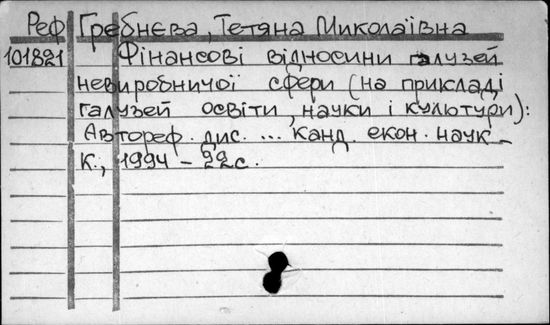 Реф Гребнєва, Тетяна Миколаївна
101821 Фінансові відносини галузей
невиробничої сфери (на прикладі
галузей освіти, науки і культури):
Автореф. дис. ... канд. екон. наук –
К., 1994 – 22с.